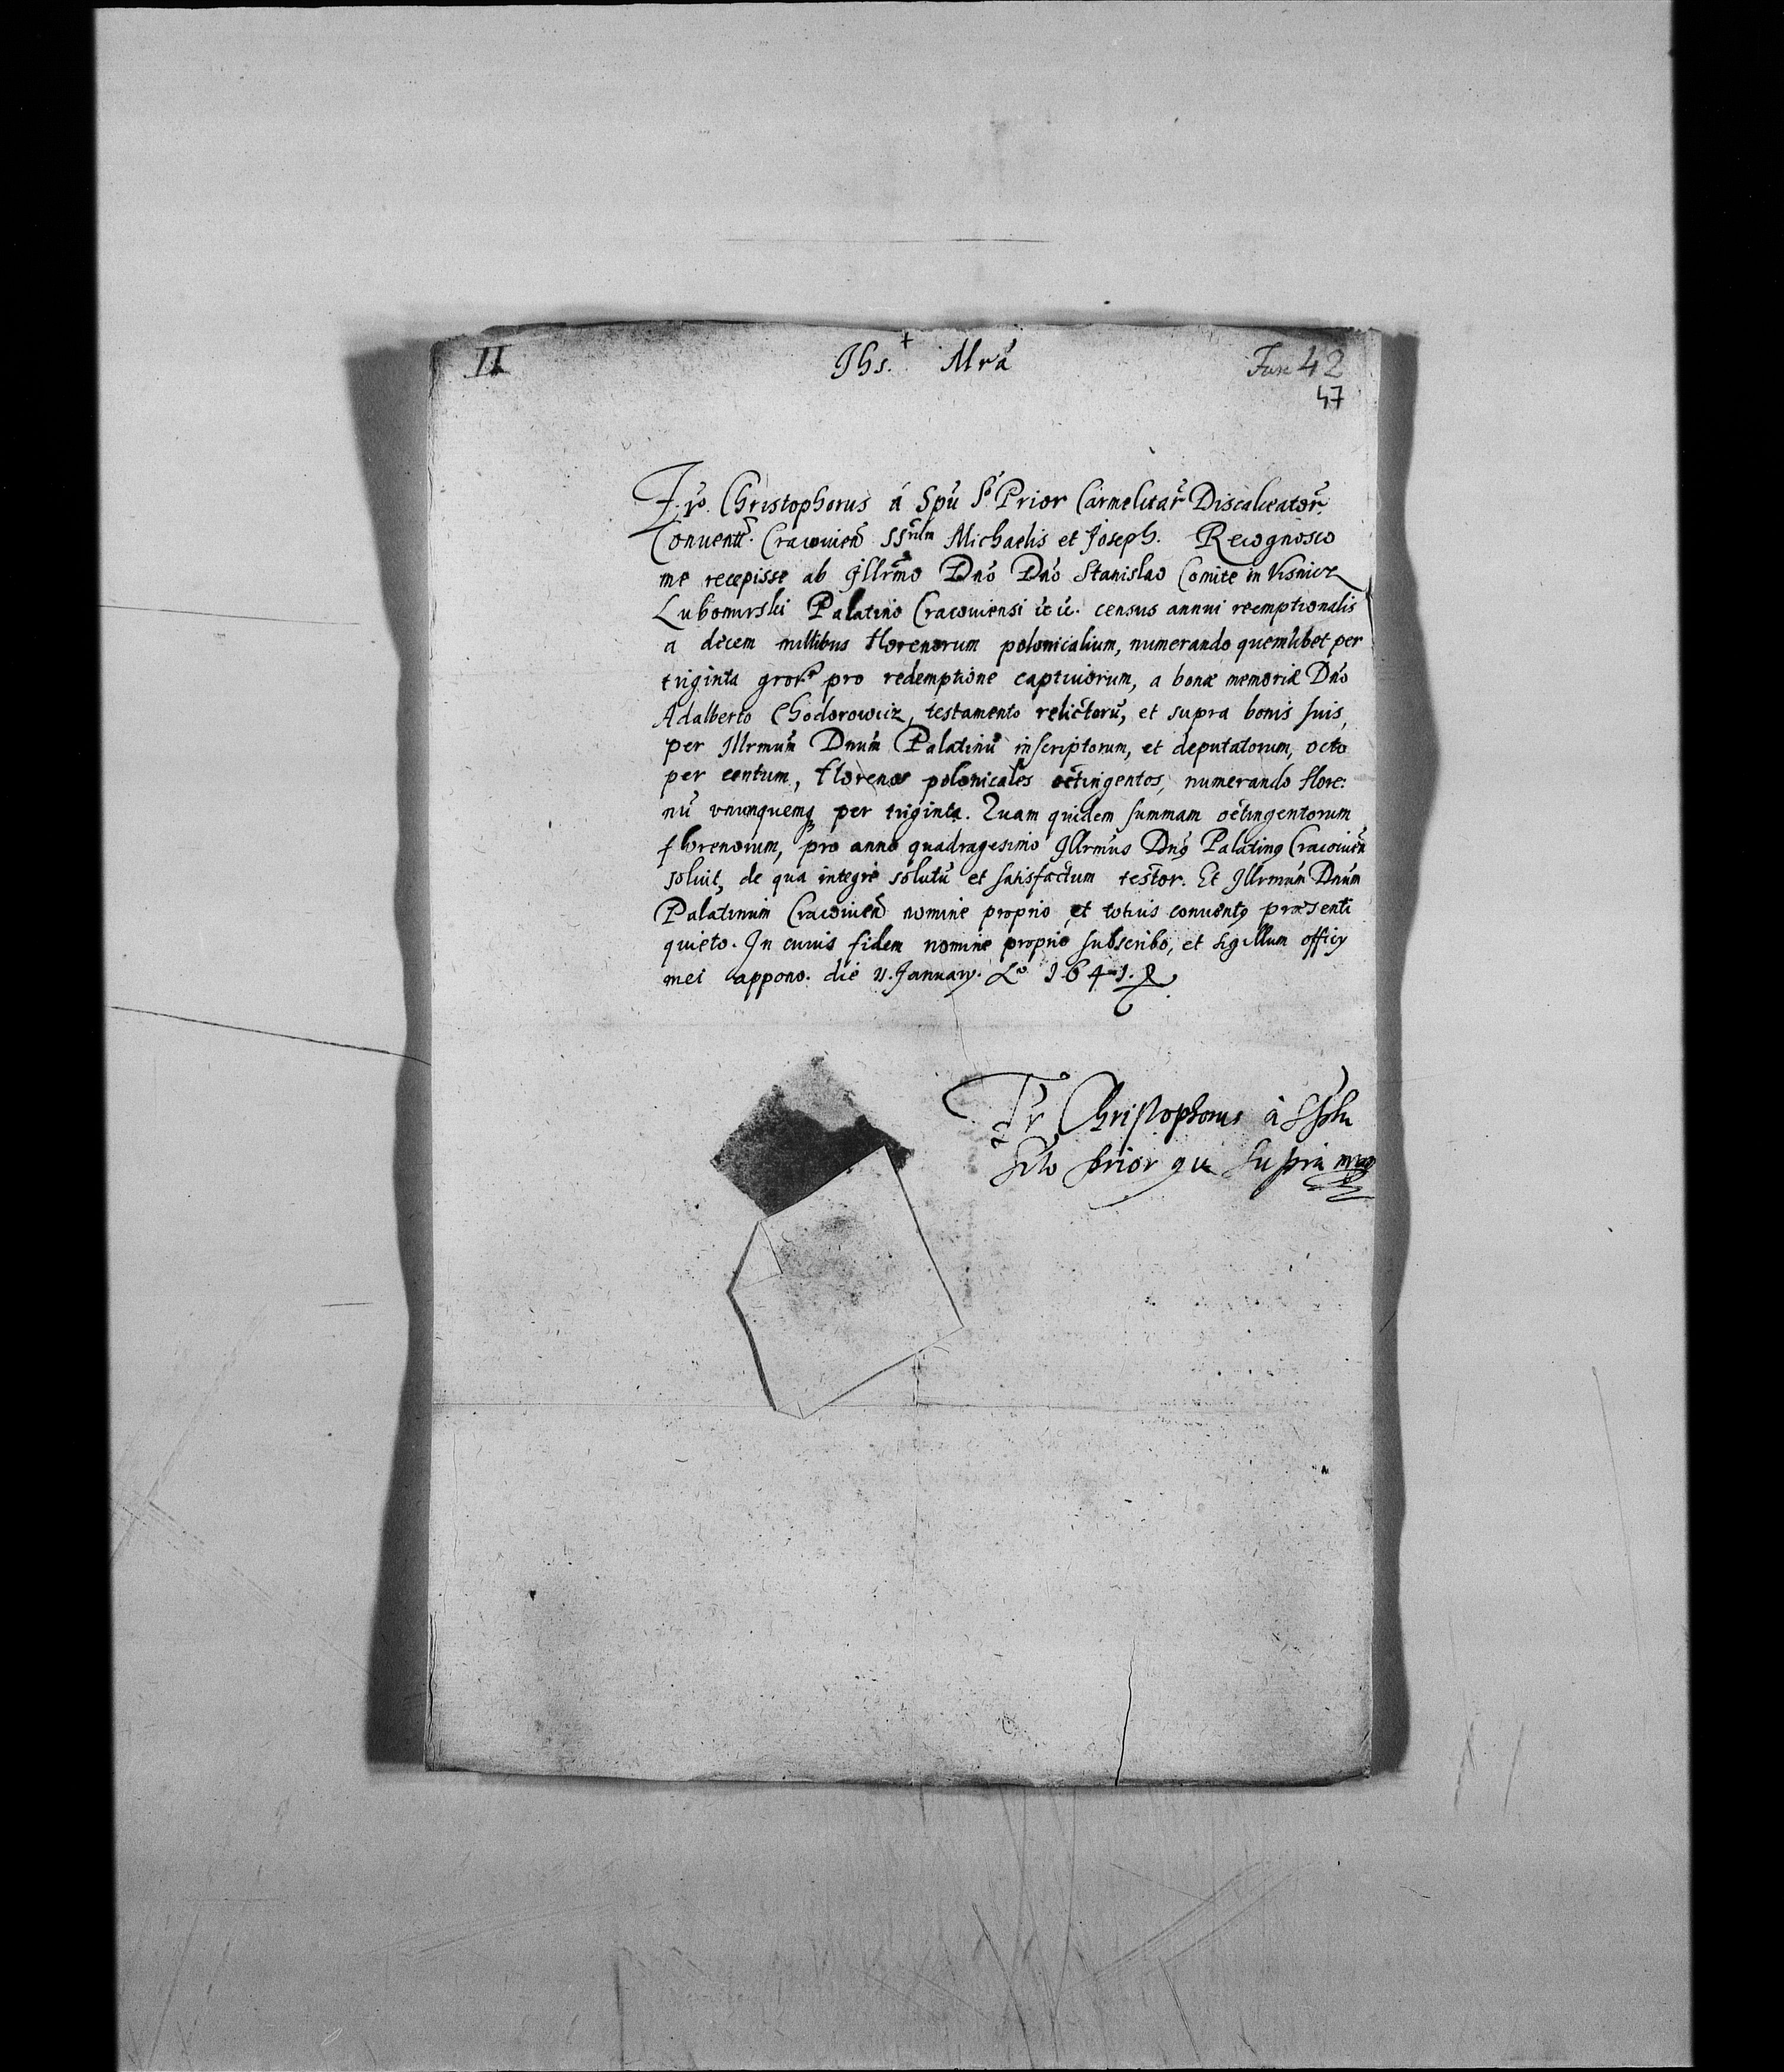 II Jhs. + Mrā Fasc 42
47
Fr. Christophorus á Spū Sº Prior Carmelitar̃ Discalceator̃.
Conuentũ. Cracouien̄ SSrũm Michaelis et Joseph. Recognosco
me recepisse ab Jllrmo Dnō Dnō Stanislao Comite in Visnicz
Lubomirski Palatino Cracouiensi &c &c. census annui reemptionalis
a decem millibus florenorum polonicalium, numerando quemlibet per
triginta gros. pro redemptione captiuorum, a bonæ memoriæ Dnō
Adalberto Chodorowicz, testamento relictorū, et supra bonis suis,
per Jllrmum Dnum Palatinū inscriptorum, et deputatorum, octo
per centum, florenos polonicales octingentos, numerando flore:
nū vnumquemq̨ per triginta. Quam quidem summam octingentorum
florenorum, pro anno quadragesimo Jllrmus Dnꝰ Palatinꝰ Cracouien̄
soluit, de qua integre solutū et satisfactum testor. Et Jllrmum Dnum
Palatinum Cracouien̄ nomine proprio, et totius conuentꝰ præsenti
quieto. In cuius fidem nomine proprio subscribo, et sigillum officij
mei appono. die 11. Januarij. Aº 1641.
Fr Christophorus à Spũ
Sto Prior qui supra mpp